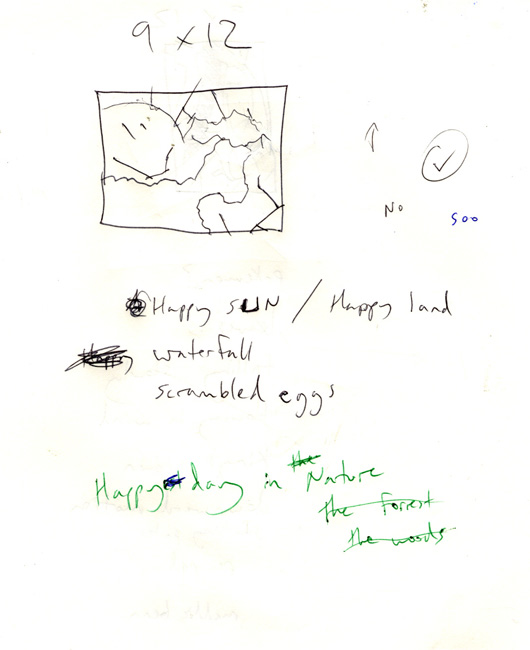 9 x 12
No
Soo
Happy SUN / Happy land
Happy waterfall
scrambled eggs
Happy day in the Nature
the Forrest
the woods